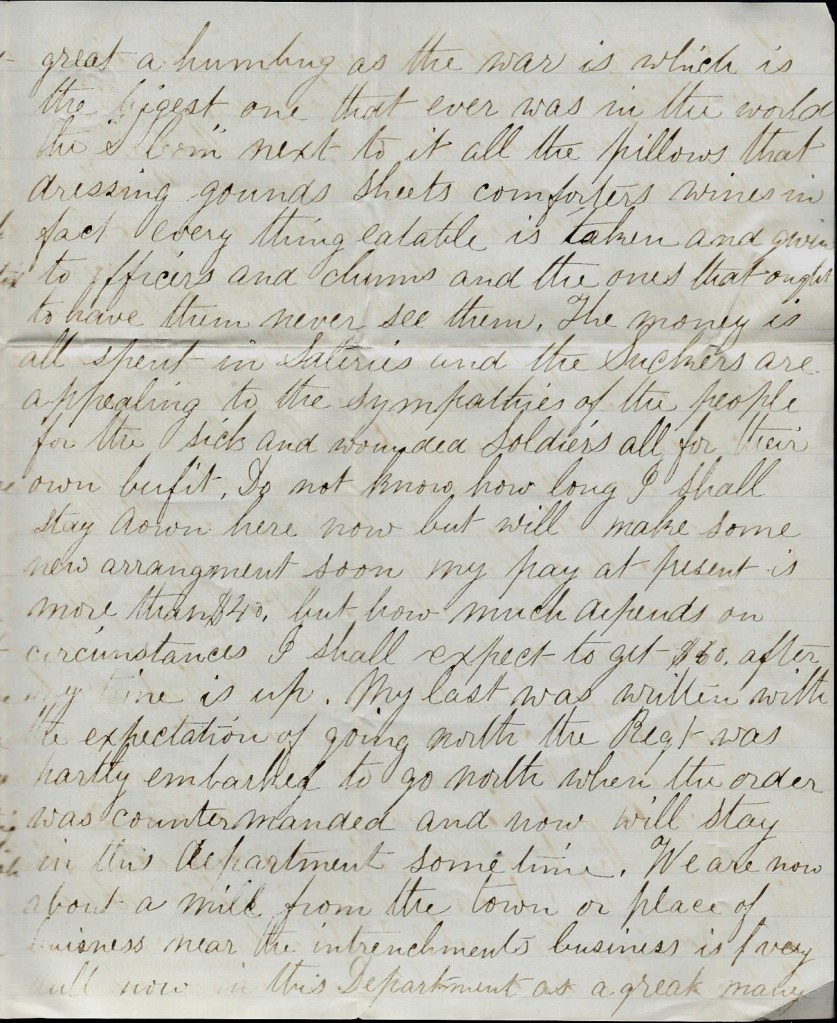 great a humbug as the war is which is
the bigest one that ever was in the world
the S Com next to it all the pillows that
dressing gounds sheets comforters wines in
fact every thing eatable is taken and given
to officers and chums and the ones that ought
to have them never see them. The money is
all spent in Saleries and the Suckers are
appealing to the sympathies of the people
for the sick and wounded Soldiers all for their
own benfit. Do not know how long I shall
stay down here now but will make some
new arrangment soon my pay at present is
more than $40. but how much depends on
circunstances I shall expect to get $60. after
my time is up. My last was written with
the expectation of going north the Regt was
partly embarked to go north when the order
was countermanded and now will stay
in this Department some time. We are now
about a mile from the town or place of
buisness near the intrenchments business is very
dull now in this Department as a great many